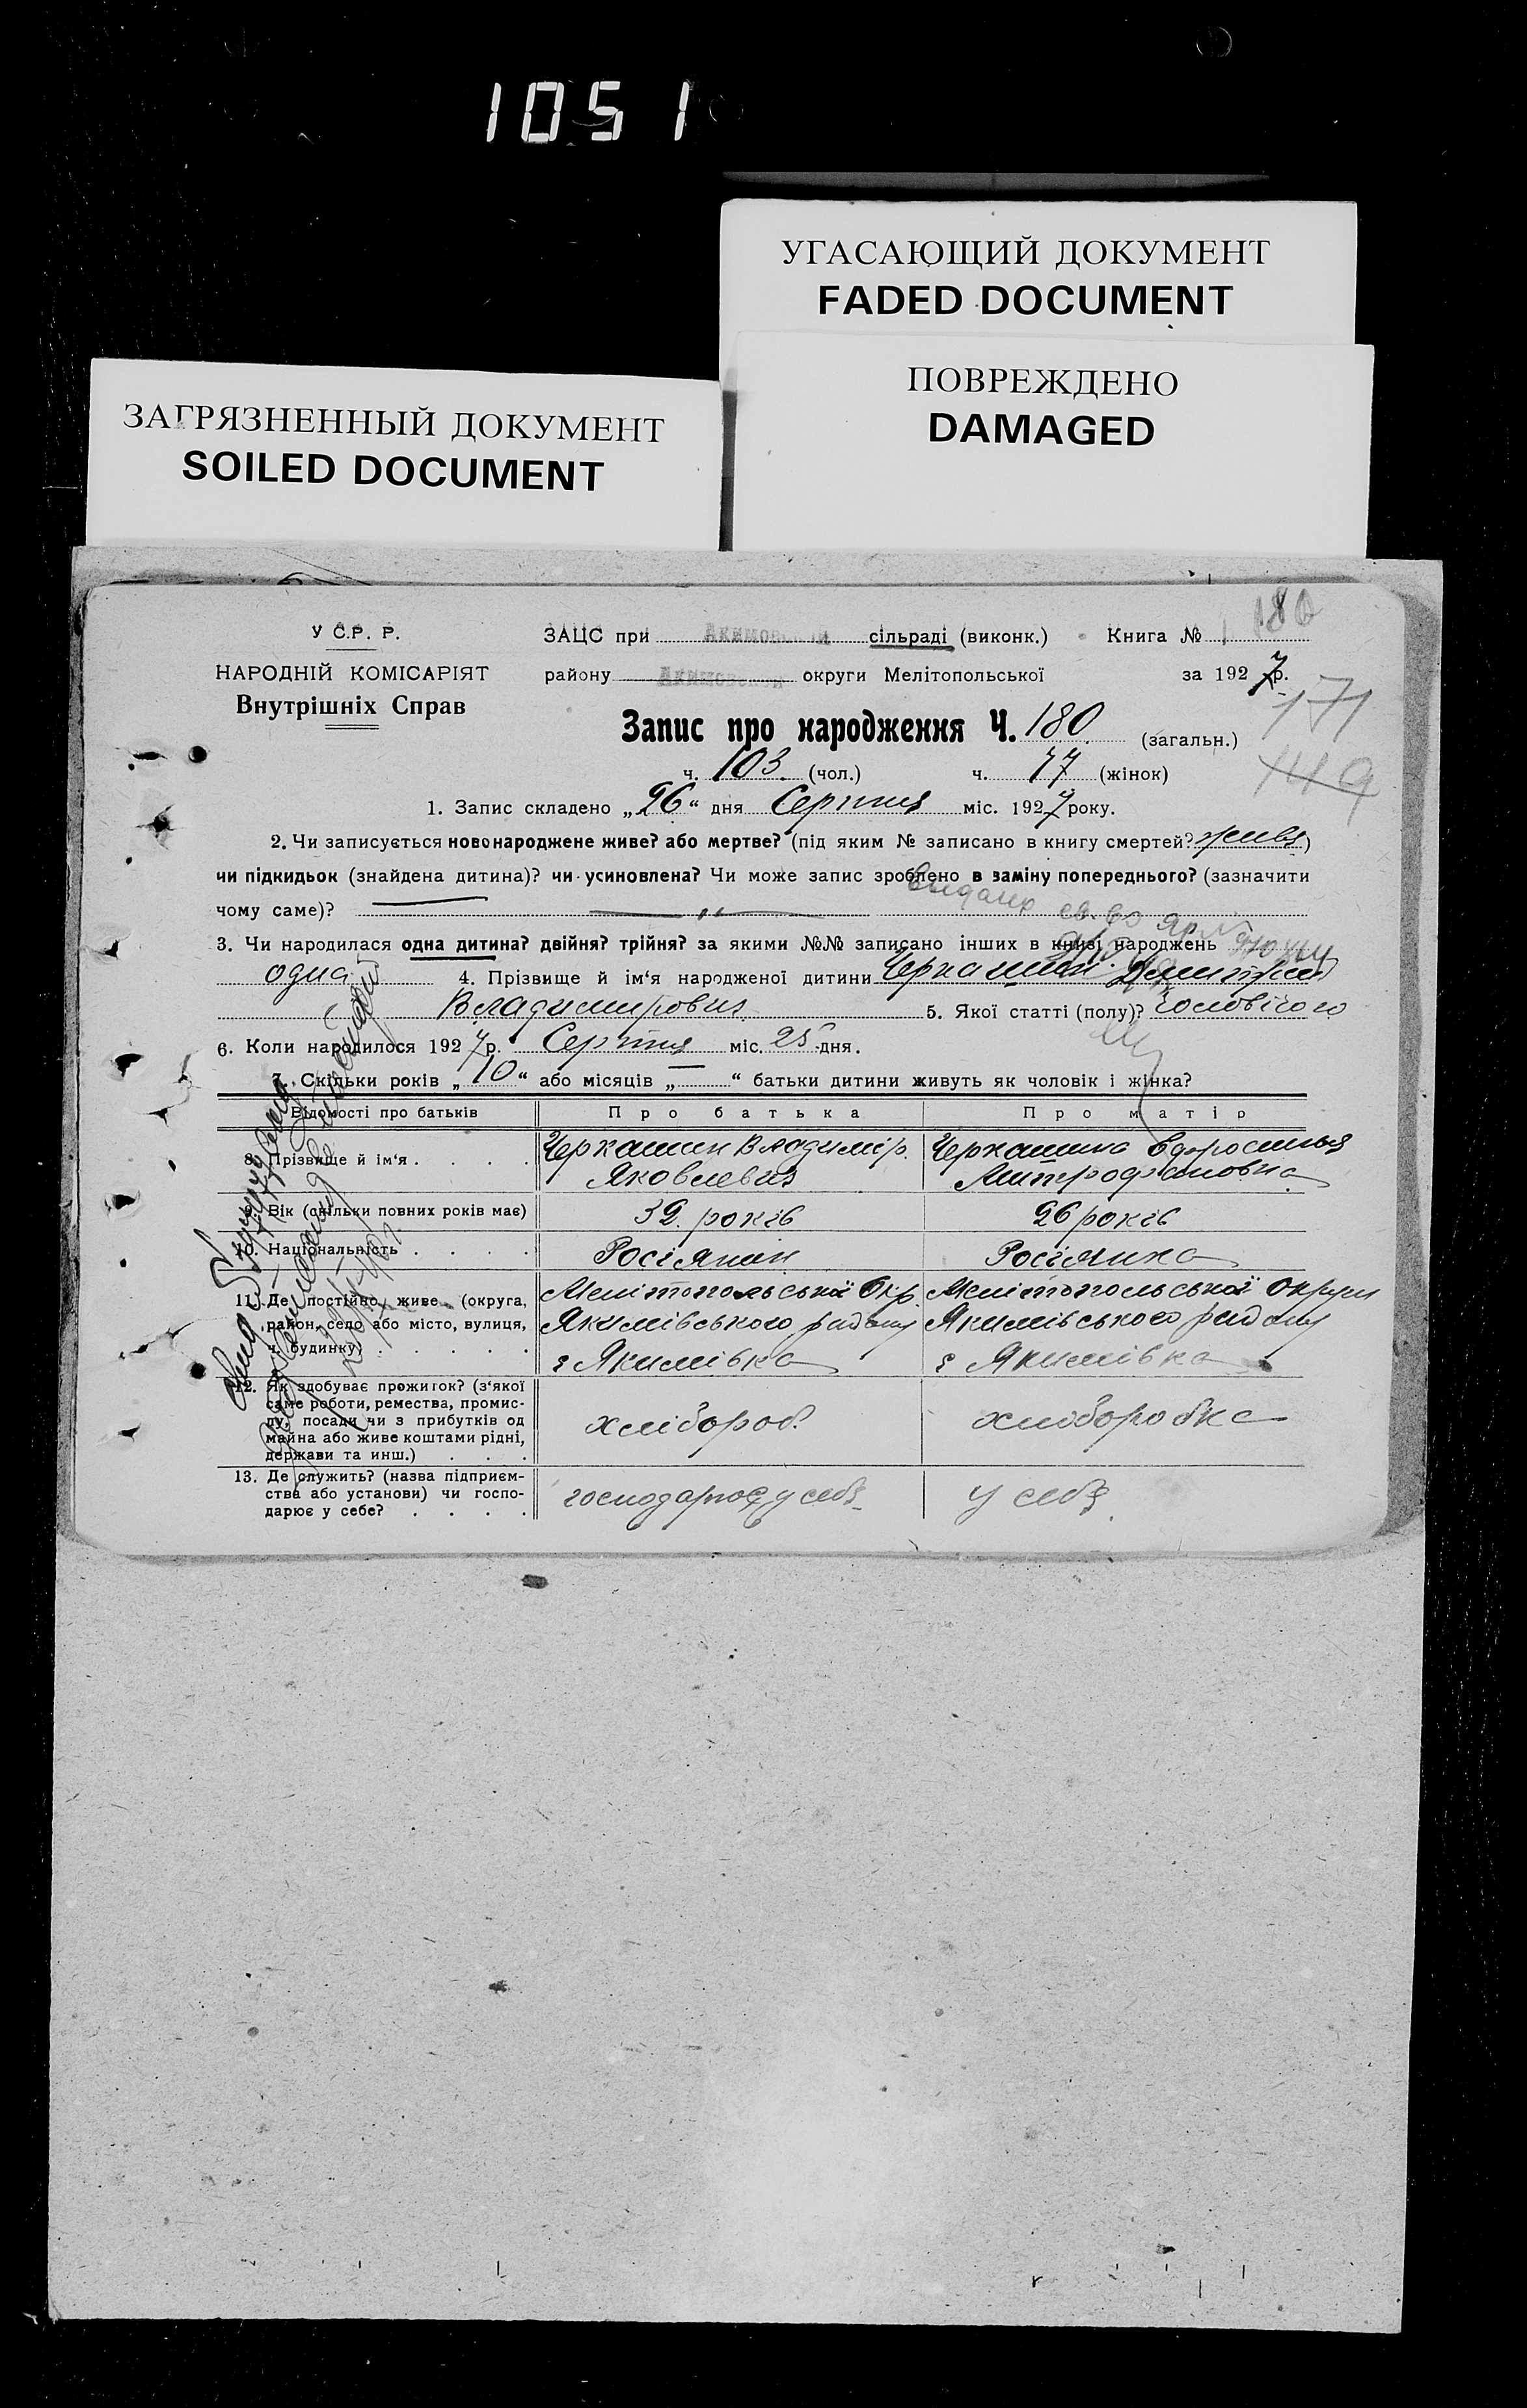 1051
УГАСАЮЩИЙ ДОКУМЕНТ
FADED DOCUMENT
ПОВРЕЖДЕНО
DAMAGED
ЗАГРЯЗНЕННЫЙ ДОКУМЕНТ
SOILED DOCUMENT
180
У С.Р. Р.
ЗАЦС при Акимовской сільраді (виконк.) Книга № 1
НАРОДНІЙ КОМІСАРІЯТ
району Акимовский округи Мелітопольської за 1927 р.
Внутрішніх Справ
171
Запис про народження Ч. 180 (загальн.)
ч. 103 (чол.) ч. 77 (жінок)
149
1. Запис складено „26“ дня Серпня міс. 1927 року.
2. Чи записується новонароджене живе? або мертве? (під яким № записано в книгу смертей? живе)
чи підкидьок (знайдена дитина)? чи усиновлена? Чи може запис зроблено в заміну попереднього? (зазначити
чому саме)? — „ —
3. Чи народилася одна дитина? двійня? трійня? за якими №№ записано інших в книзі народжень
одна 4. Прізвище й ім‘я народженої дитини Черкашин Димитрий
Владимирович 5. Якої статті (полу)? чоловічого
6. Коли народилося 1927 р. Серпня міс. 25 дня.
7. Скільки років „10“ або місяців „—“ батьки дитини живуть як чоловік і жінка?
Відомості про батьків Про батька Про матір
8. Прізвище й ім‘я . . . . Черкашин Владимір. Черкашина Ефросинья
Яковлевич Митрофановна
9. Вік (скільки повних років має) 32. років 26 років
10. Національність . . . . Росіянин Росіянка
11. Де постійно живе (округа, Мелітопольської Окр. Мелітопольської Округи
район, село або місто, вулиця, Якимівського району Якимівського району
ч. будинку) . . . . . с Якимівка с Якимівка
12. Як здобуває прожиток? (з‘якої
саме роботи, ремества, промис-
лу, посади чи з прибутків од хлібороб. хліборобка
майна або живе коштами рідні,
держави та инш.) . . .
13. Де служить? (назва підприєм-
ства або установи) чи госпо- господарює у себе у себе
дарює у себе? . . . .